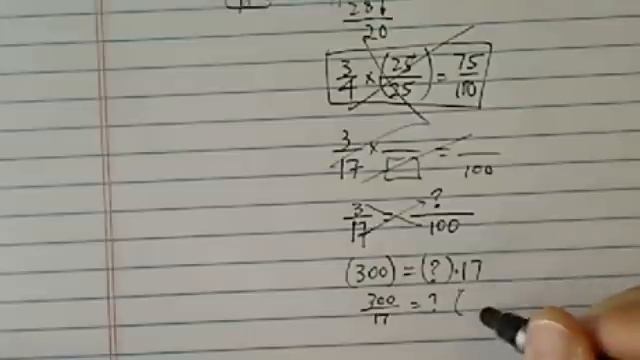 20
3/4 × (25/25) = 75/100
3/17 × —/□ = —/100
3/17 = ?/100
(300) = (?)·17
300/17 = ? (